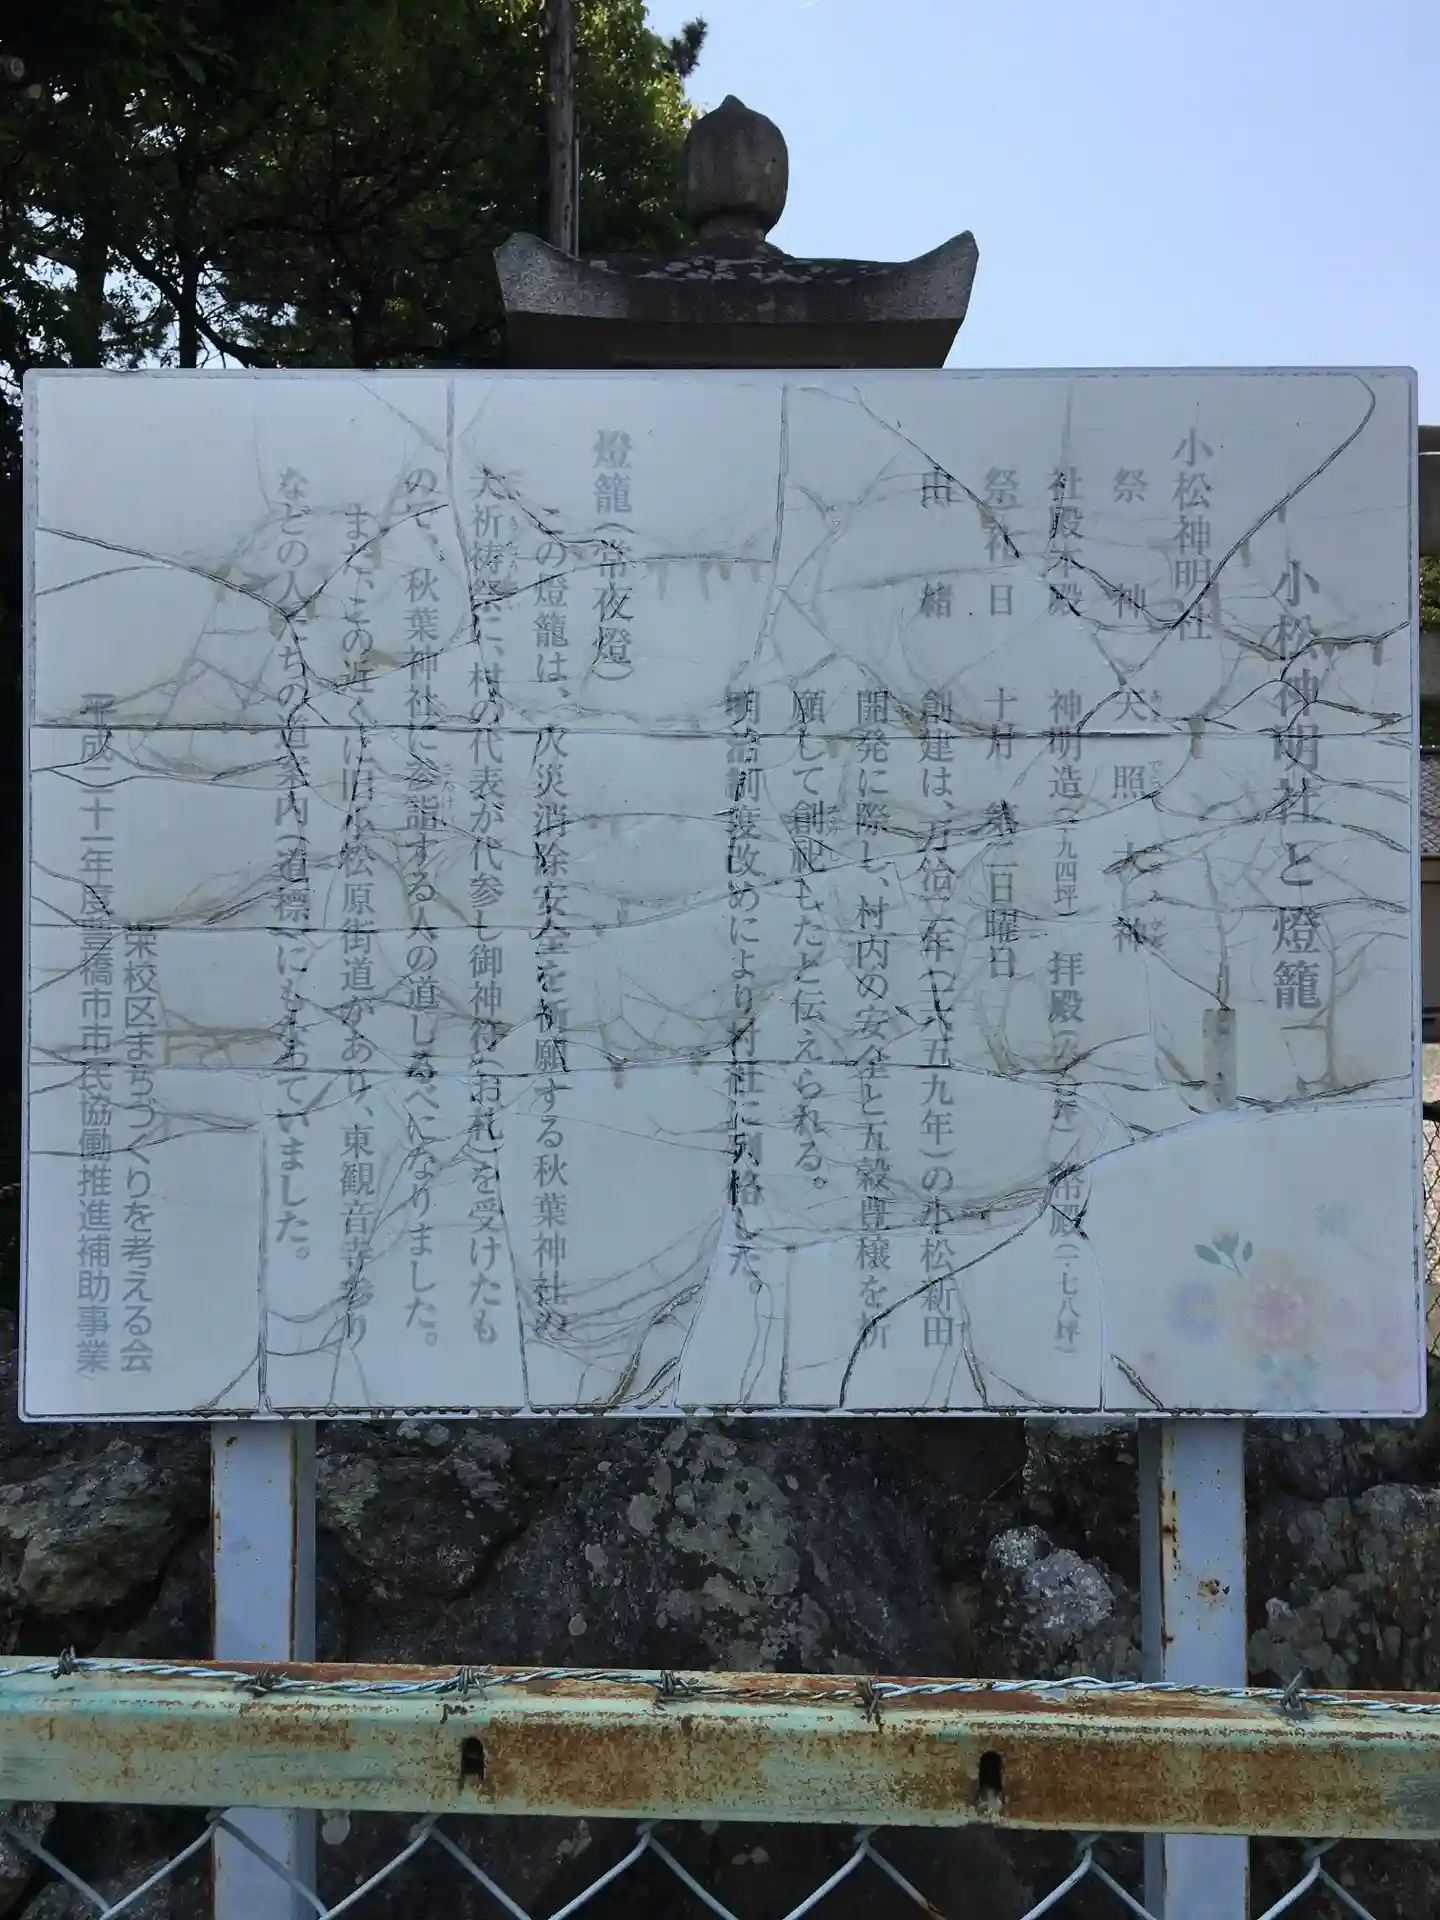 小松神明社と燈籠
小松神明社
祭神 天照大神
社殿本殿 神明造(一、九四坪) 拝殿 幣殿(一・七八坪)
祭礼日 十月 第二日曜日
由緒 創建は、万治二年(一六五九年)の小松新田
開発に際し、村内の安全と五穀豊穣を祈
願して創祀したと伝えられる。
明治制度改めにより村社に列格した。
燈籠(常夜燈)
この燈籠は、火災消除安全を祈願する秋葉神社の
大祈祷祭に、村の代表が代参し御神符(お札)を受けたも
ので、秋葉神社に参詣する人の道しるべになりました。
また、この近くに旧小松原街道があり、東観音寺参り
などの人たちの道案内(道標)にもなっていました。
栄校区まちづくりを考える会
平成二十一年度豊橋市市民協働推進補助事業